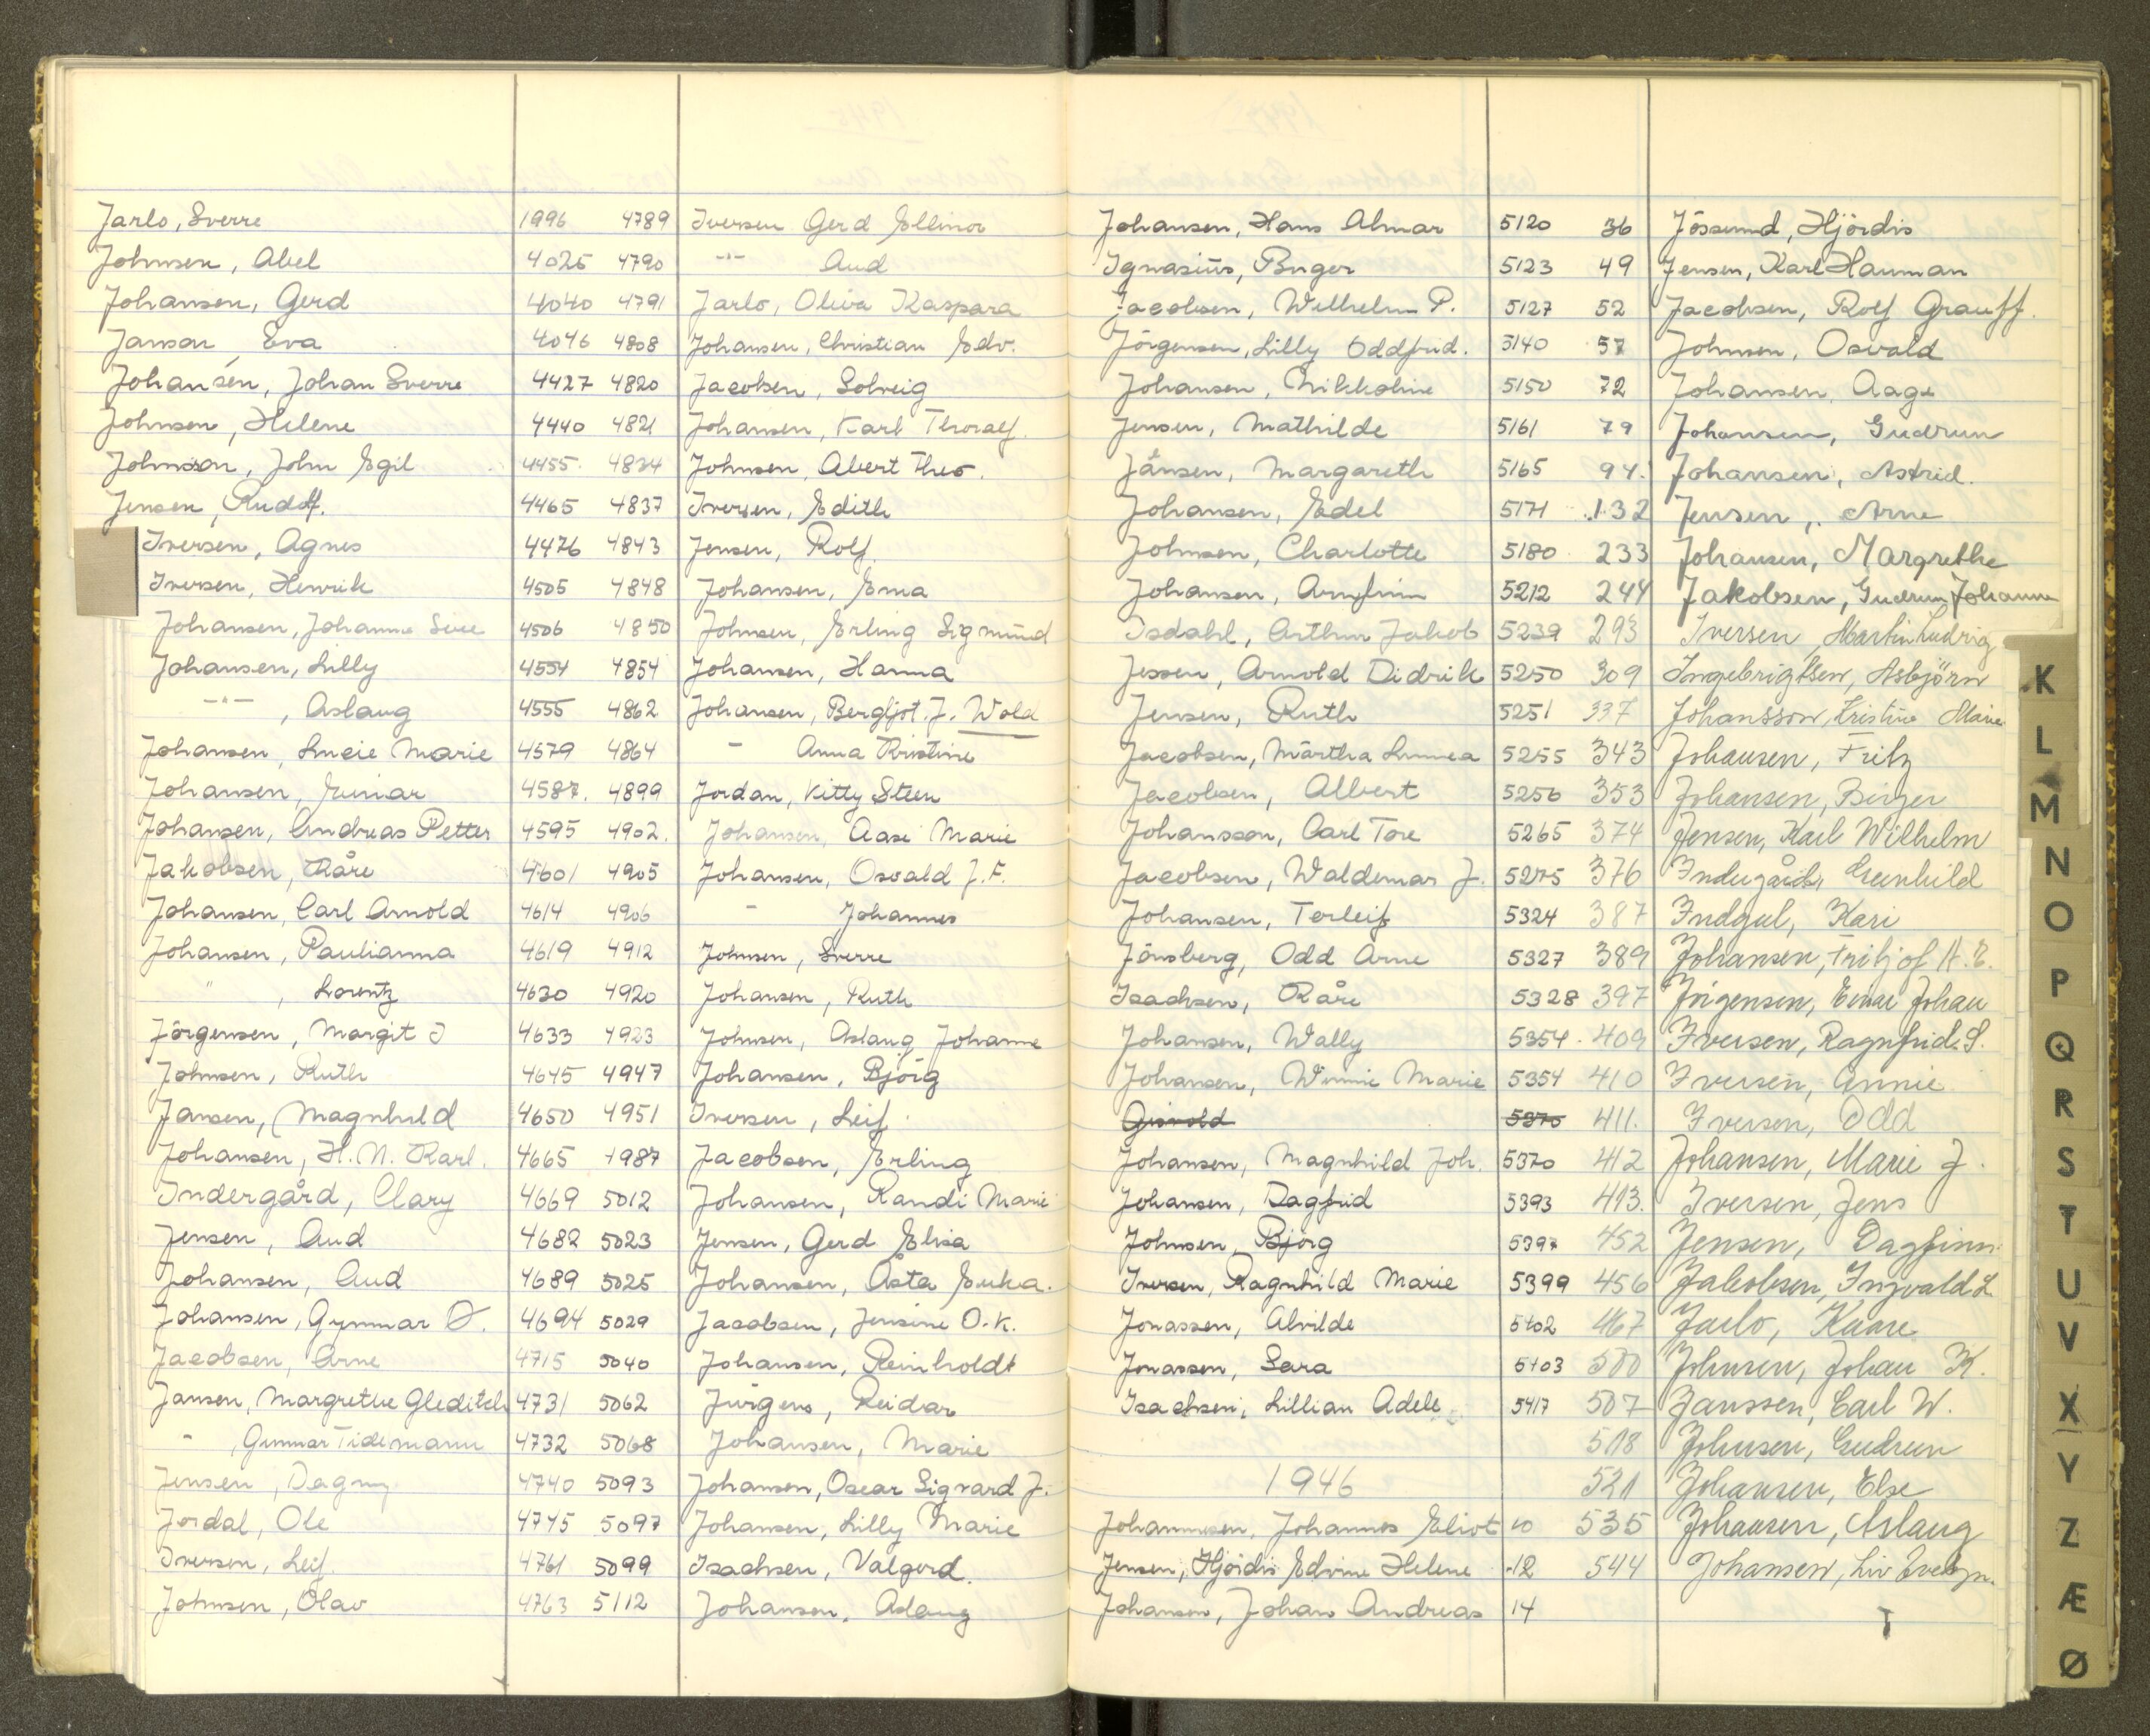 Jarlo, Sverre 1996 4789 Iversen Gerd Ellinor
Johnsen, Abel 4025 4790 -"- Aud
Johansen, Gerd 4040 4791 Jarlo, Oliva Kaspara
Janson, Eva 4046 4808 Johansen, Christian Edv.
Johansen, Johan Sverre 4427 4820 Jacobsen, Solveig
Johnsen, Helene 4440 4821 Johansen, Karl Thoralf.
Johnson, John Egil 4455 4824 Johnsen, Abert Theo.
Jensen, Rudolf. 4465 4837 Iversen, Edith
Iversen, Agnes 4476 4843 Jensen, Rolf
Iversen, Henrik 4505 4848 Johansen, Erna
Johansen, Johanna 4506 4850 Johnsen, Erling Sigmund
Johansen, Lilly 4554 4854 Johansen, Hanna
-"- , Aslaug 4555 4862 Johansen, Bergljot. J. Wold
Johansen, Lucie Marie 4579 4864 - Anna Kristine
Johansen, Einar 4587. 4899 Jordan, Kitty Steen
Johansen, Andreas Petter 4595 4902. Johansen, Aase Marie
Jakobsen, Kåre 4601 4905 Johansen, Osvald J. F.
Johansen, Carl Arnold 4614 4906 - Johannes
Johansen, Paulianna 4619 4912 Johnsen, Sverre
" , Lorentz 4630 4920 Johansen, Ruth
Jörgensen, Margit J 4633 4923 Johnsen, Aslaug Johanne
Johnsen, Ruth 4645 4947 Johansen, Björg
Jansen, Magnhild 4650 4951 Iversen, Leif.
Johansen, H. N. Karl. 4665 4987 Jacobsen, Erling
Indergård, Clary 4669 5012 Johansen, Randi Marie
Jensen, Aud 4682 5023 Jensen, Gerd Elisa
Johansen, Aud 4689 5025 Johansen, Asta Erika.
Johansen, Gunnar O. 4694 5029 Jacobsen, Jensine O. K.
Jacobsen, Arne 4715 5040 Johansen, Reinholdt
Jansen, Margrethe Gleditch 4731 5062 Jürgens, Reidar
" , Gunnar Tidemann 4732 5068 Johansen, Marie
Jensen, Dagny 4740 5093 Johansen, Oscar Sigvard J.
Jordal, Ole 4745 5097 Johansen, Lilly Marie
Iversen, Leif. 4761 5099 Isachsen, Valgerd.
Johnsen, Olav 4763 5112 Johansen, Aslaug
Johansen, Hans Almar 5120 36 Jössund, Hjördis
Ignasius, Birger 5123 49 Jensen, Karl Hauman
Jacobsen, Wilhelm P. 5127 52 Jacobsen, Rolf Grauff.
Jörgensen, Lilly Oddfrid. 5140 57 Johnsen, Osvald
Johansen, Nikkoline 5150 72 Johansen, Aage
Jensen, Mathilde 5161 79 Johansen, Gudrun
Jänsen, Margareth 5165 94. Johansen, Astrid.
Johansen, Edel 5171 132 Jensen, Arne
Johnsen, Charlotte 5180 233 Johansen, Margrethe
Johansen, Arnfinn 5212 244 Jakobsen, Gudrun Johanne
Isdahl, Arthur Jakob 5239 293 Iversen, Martin Ludvig
Jessen, Arnold Didrik 5250 309 Ingebrigtsen, Asbjörn
Jensen, Ruth 5251 337 Johansson, Kristine Marie
Jacobsen, Märtha Linnea 5255 343 Johansen, Fritz
Jacobsen, Albert 5256 353 Johansen, Birger
Johansson, Carl Tore 5265 374 Jensen, Karl Wilhelm
Jacobsen, Waldemar J. 5275 376 Indergård, Gunhild
Johansen, Terleif 5324 387 Indgul, Kari
Jönsberg, Odd Arne 5327 389 Johansen, Fritjof H. E.
Isachsen, Kåre 5328 397 Jörgensen, Einar Johan
Johansen, Wally 5354 409 Iversen, Ragnfrid. S.
Johansen, Winnie Marie 5354 410 Iversen, Annie
Gisvold 5370 411. Iversen, Odd
Johansen, Magnhild Joh. 5370 412 Johansen, Marie J.
Johansen, Dagfrid 5393 413. Iversen, Jens
Johnsen, Björg 5397 452 Jensen, Dagfinn.
Iversen, Ragnhild Marie 5399 456 Jakobsen, Ingvald L.
Jonassen, Alvilde 5402 467 Jarlo, Kaare
Jonassen, Sara 5403 500 Johnsen, Johan K.
Isachsen, Lillian Adele 5417 507 Janssen, Carl W.
518 Johnsen, Gudrun
1946 521 Johansen, Else
Johannesen, Johannes Eliot 10 535 Johansen, Aslaug
Jensen, Hjördis Edvine Helene 12 544 Johansen, Liv Evelyn.
Johansen, Johan Andreas 14
K
L
M
N
O
P
Q
R
S
T
U
V
X
Y
Z
Æ
Ø